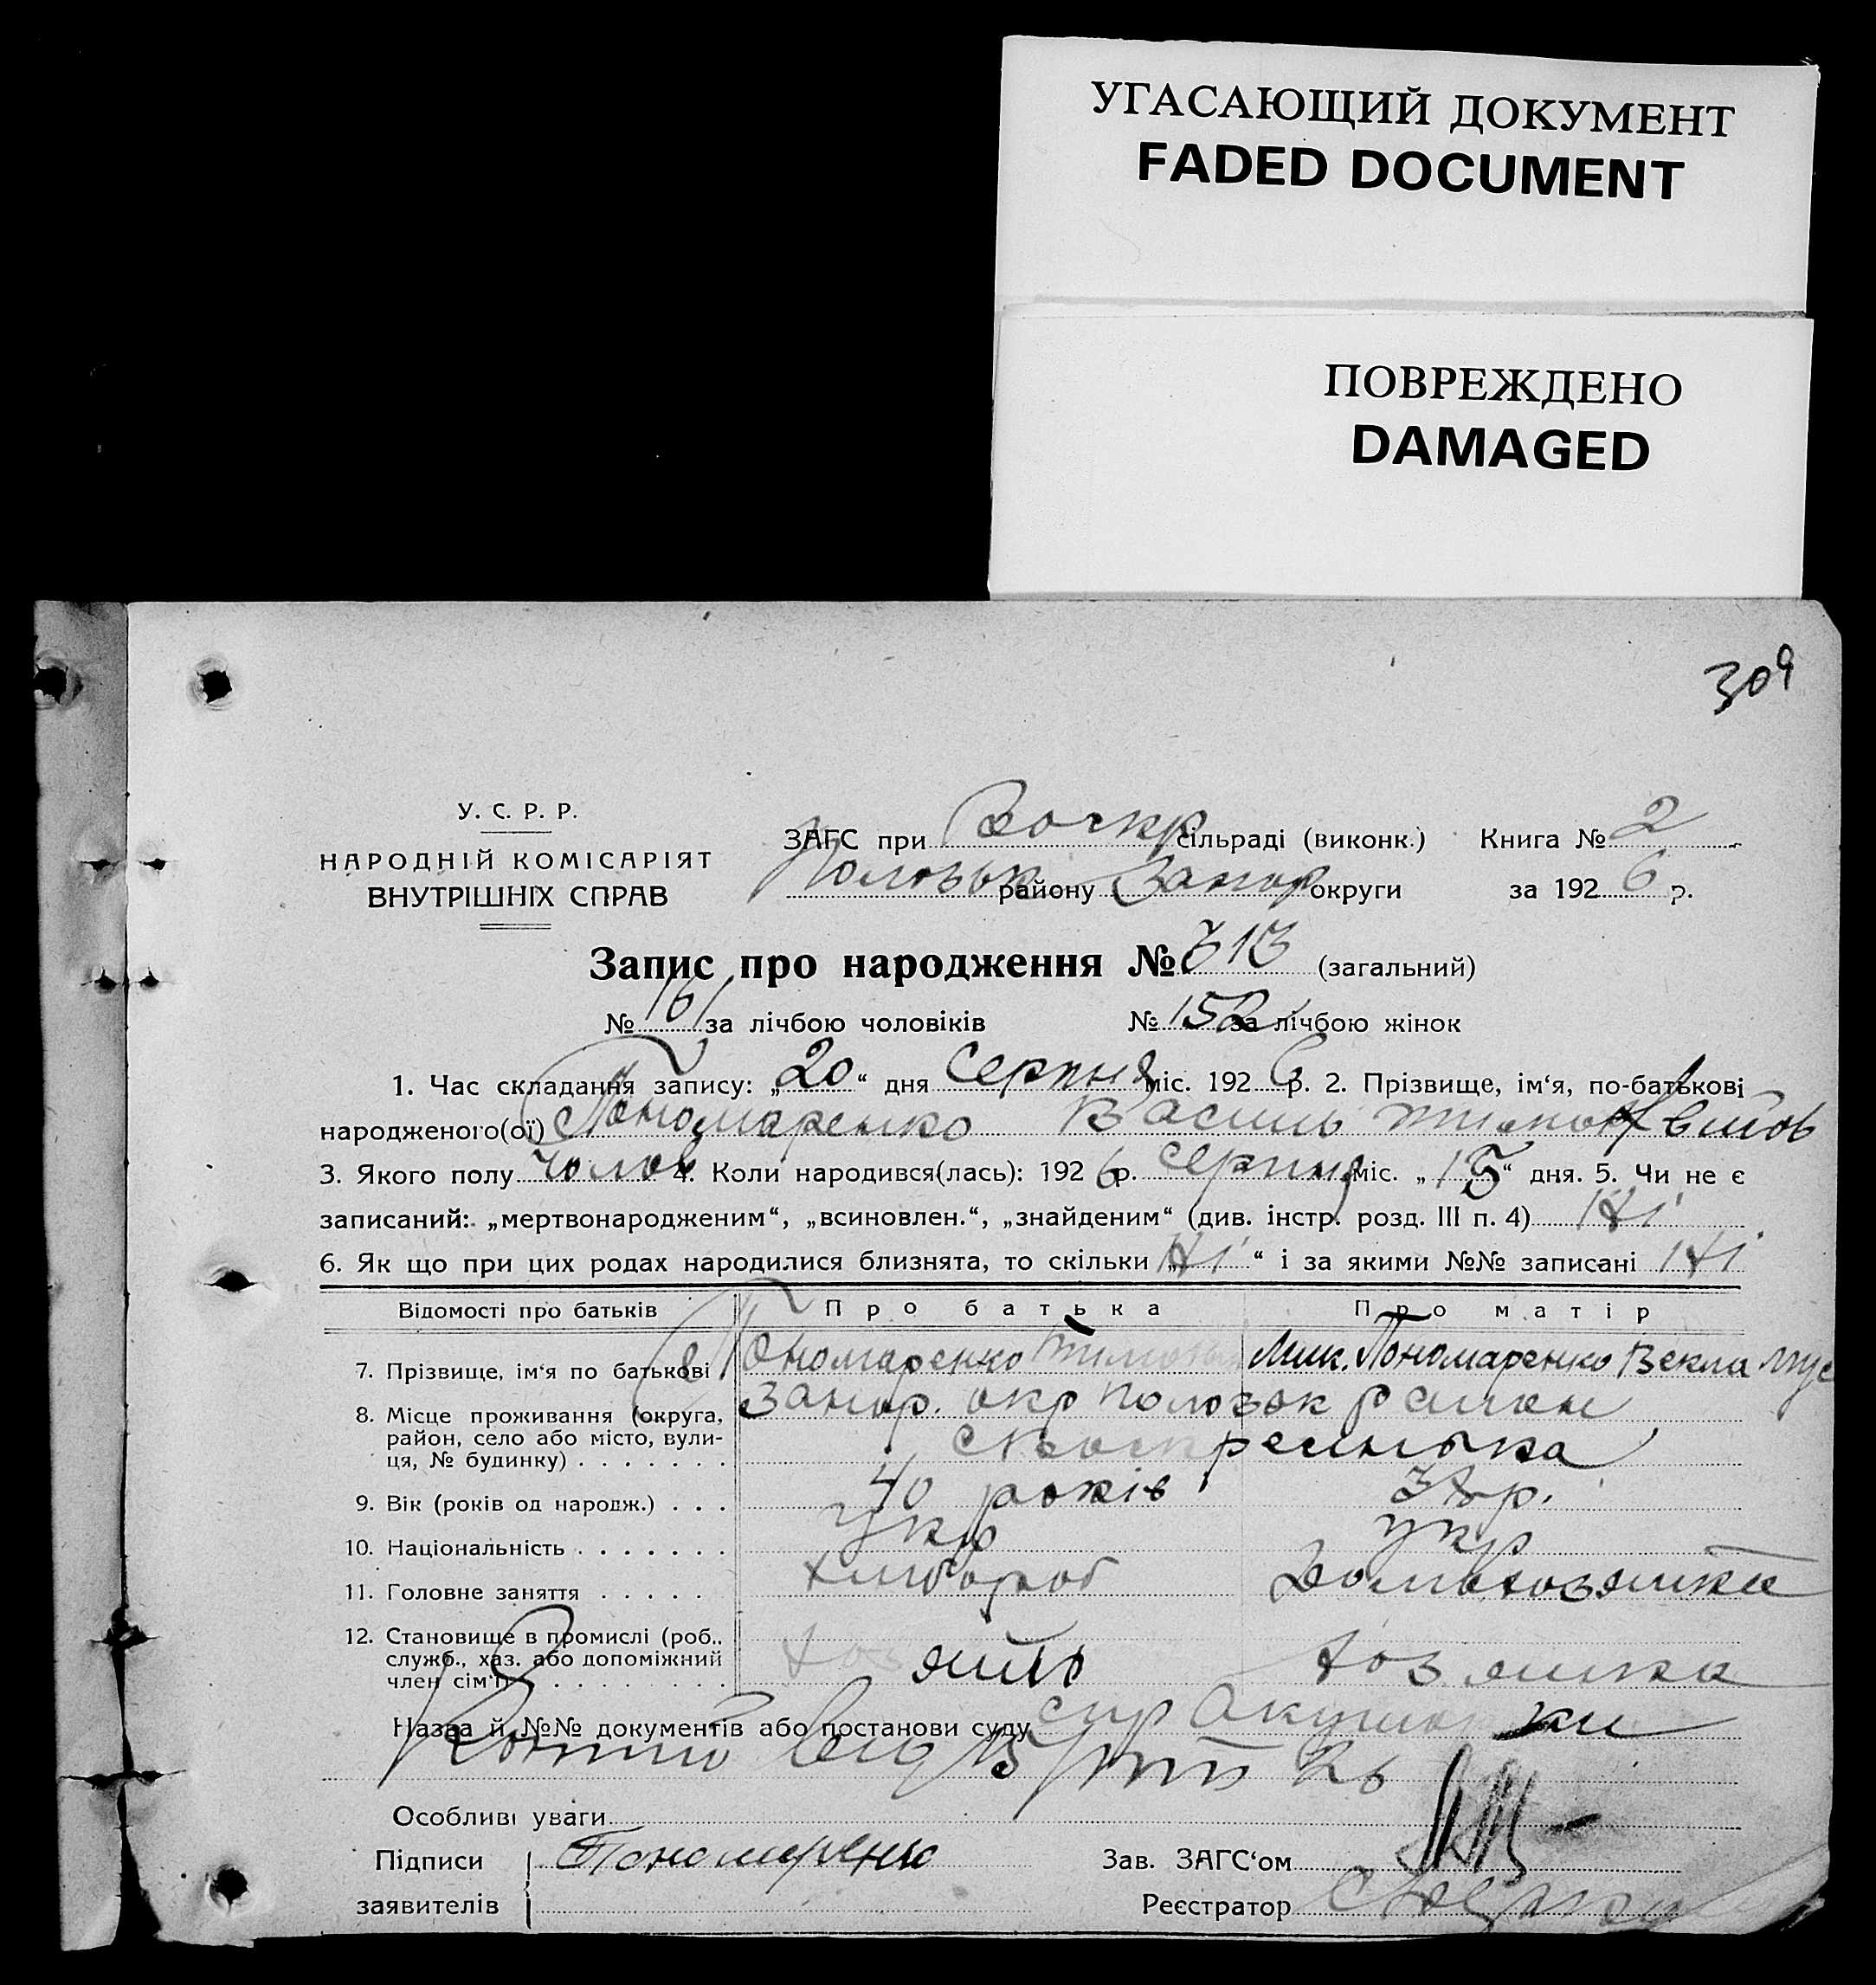 УГАСАЮЩИЙ ДОКУМЕНТ
FADED DOCUMENT
ПОВРЕЖДЕНО
DAMAGED
309
У. С. Р. Р.
НАРОДНІЙ КОМІСАРІЯТ
ВНУТРІШНІХ СПРАВ
ЗАГС при Воскр сільраді (виконк.) Книга № 2
Пологівськ району Запор округи за 1926 р.
Запис про народження № 313 (загальний)
№ 161 за лічбою чоловіків № 152 за лічбою жінок
1. Час складання запису: „20“ дня Серпня міс. 1926 р. 2. Прізвище, ім‘я, по-батькові
народженого(ої) Пономаренко Василь
3. Якого полу чолов 4. Коли народився(лась): 1926 р. серпня міс. „15“ дня. 5. Чи не є
записаний: „мертвонародженим“, „всиновлен.“, „знайденим“ (див. інстр. розд. III п. 4) Ні
6. Як що при цих родах народилися близнята, то скільки „Ні“ і за якими №№ записані Ні
Відомості про батьків Про батька Про матір
7. Прізвище, ім‘я по батькові Пономаренко Мик. Пономаренко Векла
8. Місце проживання (округа, район, село або місто, вулиця, № будинку) Запор. окр район
9. Вік (років од народж.) 40 років
10. Національність укр укр
11. Головне заняття хлібороб Домохозяйка
12. Становище в промислі (роб., служб., хаз. або допоміжний член сім‘ї) хозяїн хозяйка
Назва й №№ документів або постанови суду спр Акушорки
26
Особливі уваги
Підписи Пономаренко Зав. ЗАГС‘ом
заявителів Реєстратор